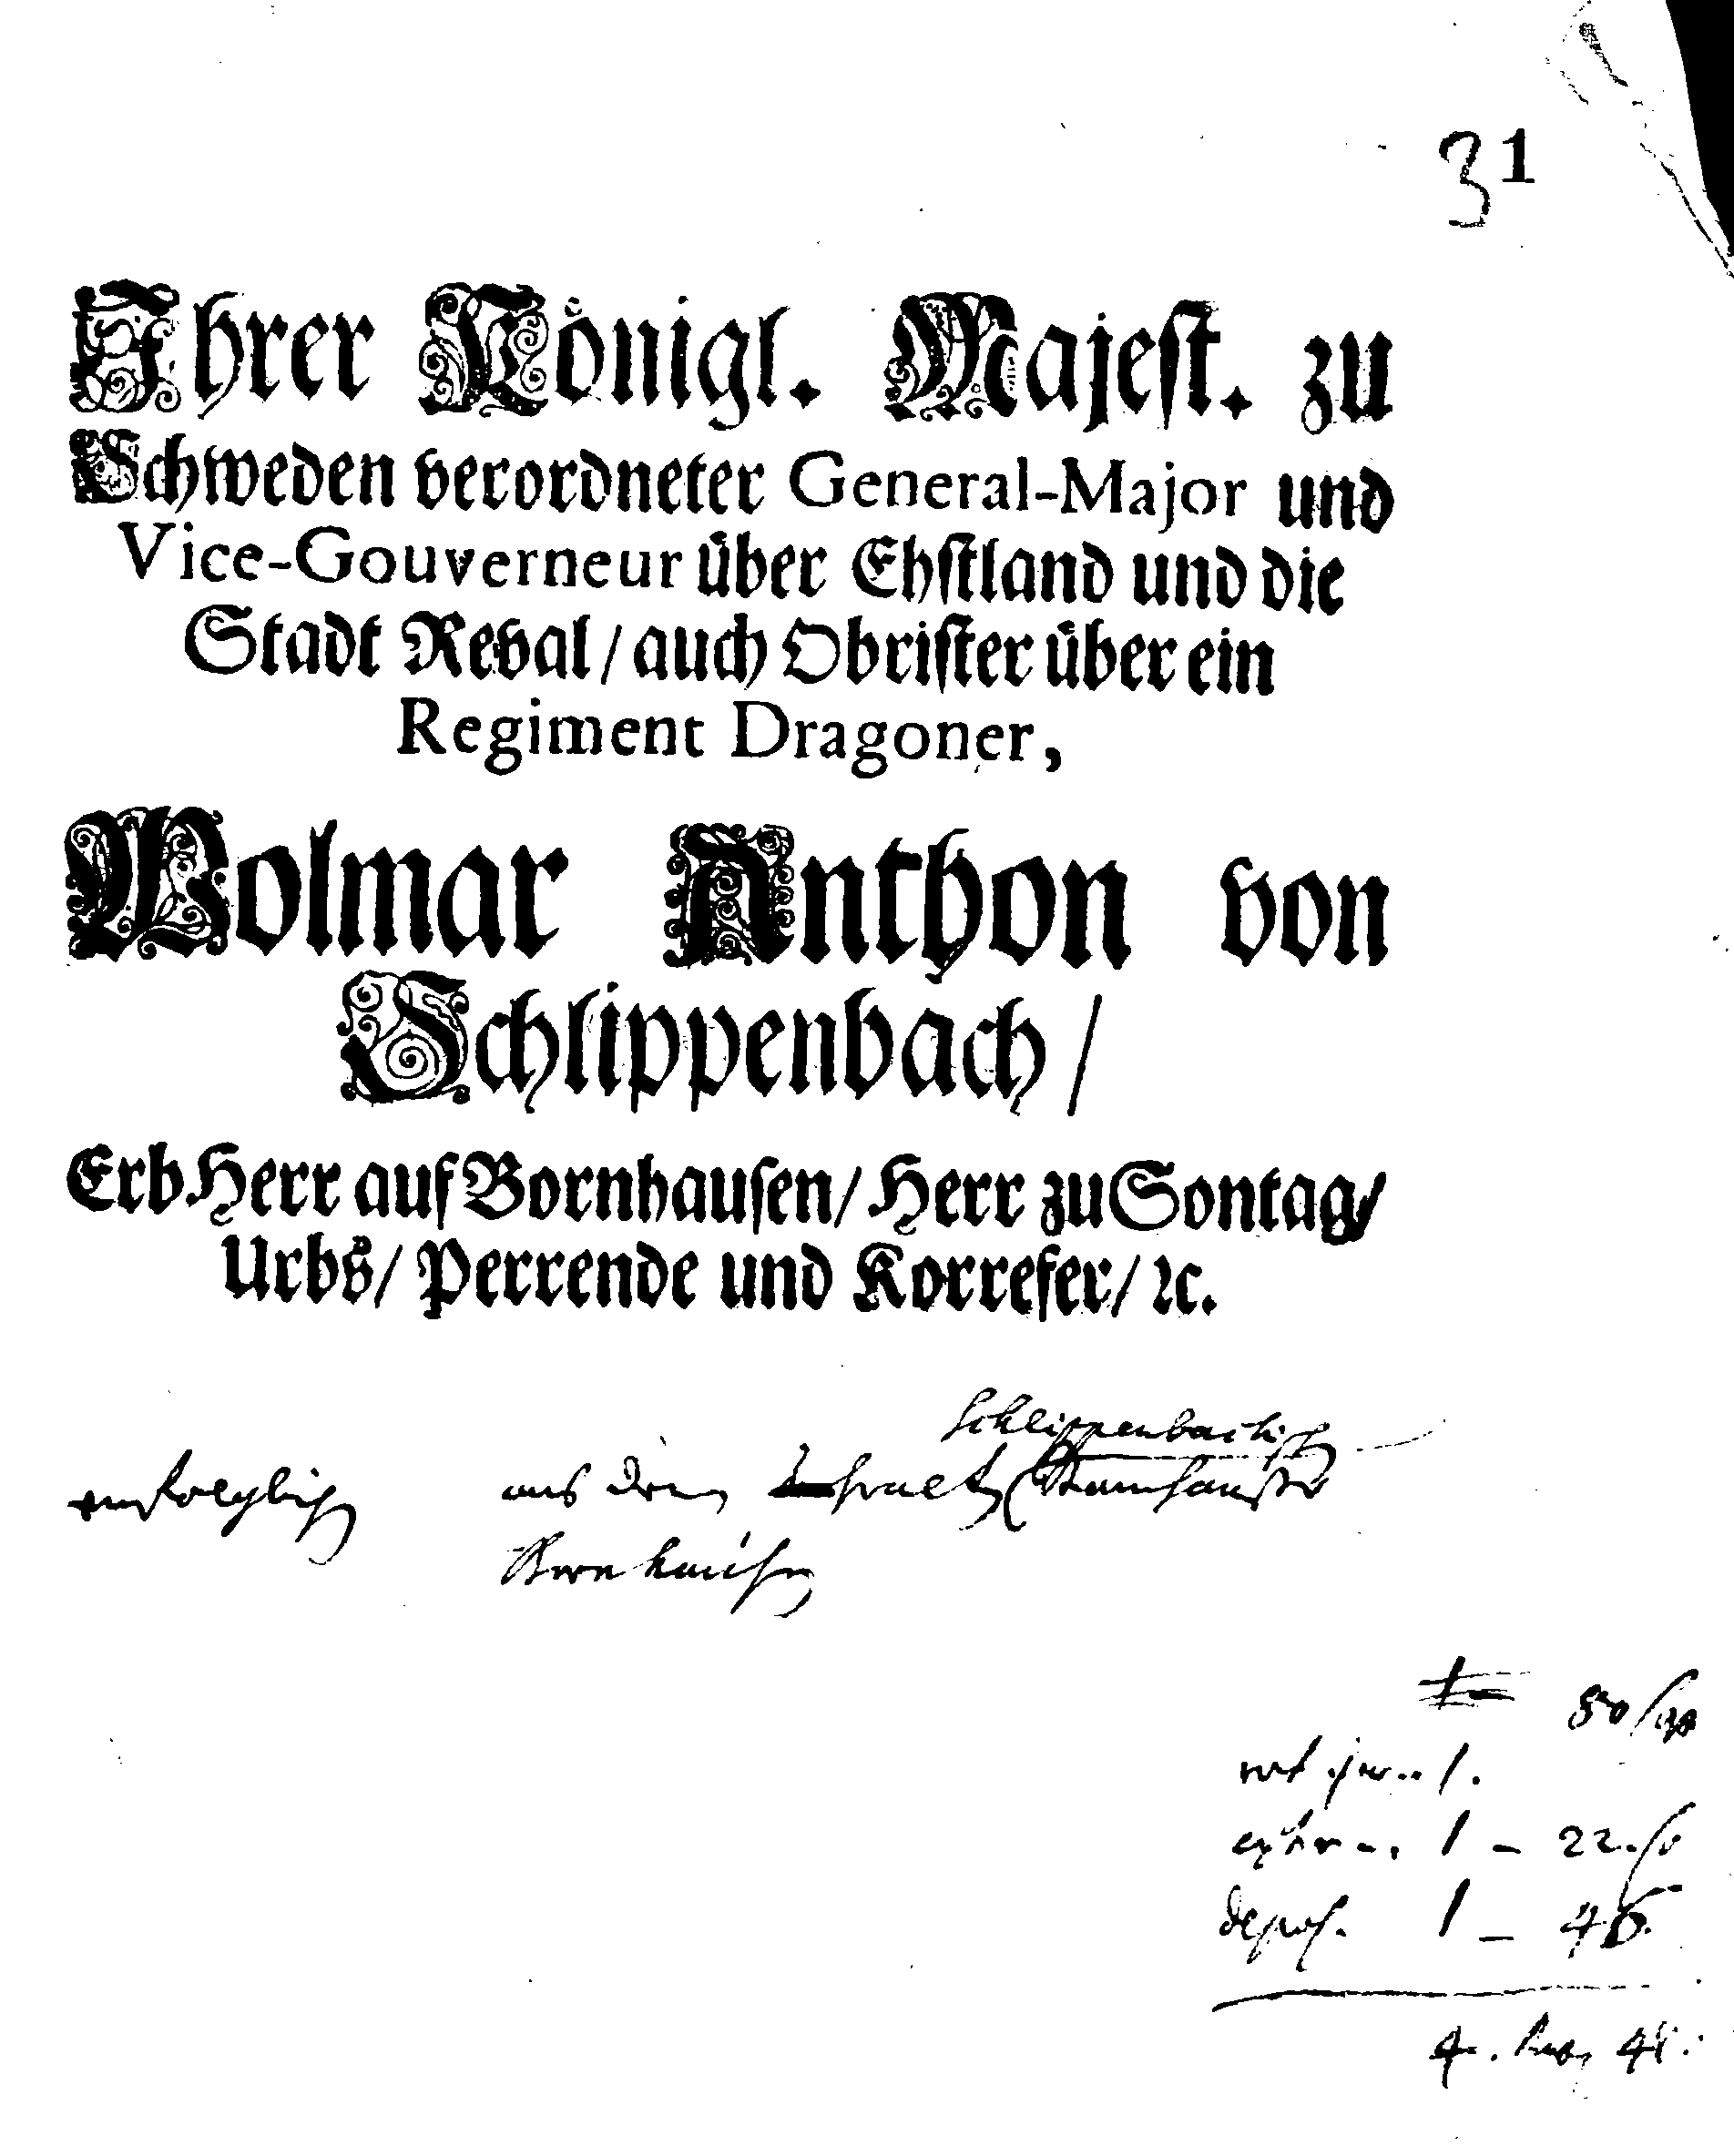 31
Ihrer Königl. Majest. zu
Schweden verordneter General-Major und
Vice-Gouverneur über Ehstland und die
Stadt Reval/ auch Obrister über ein
Regiment Dragoner,
Wolmar Anthon von
Schlippenbach/
ErbHerr auf Bornhausen/ Herr zu Sontag/
Urbs/ Perrende und Korrefer/ ꝛc.
Schlippenbach
aus dem
Bornhausen
1 - 22
depos. 1 - 46
4.